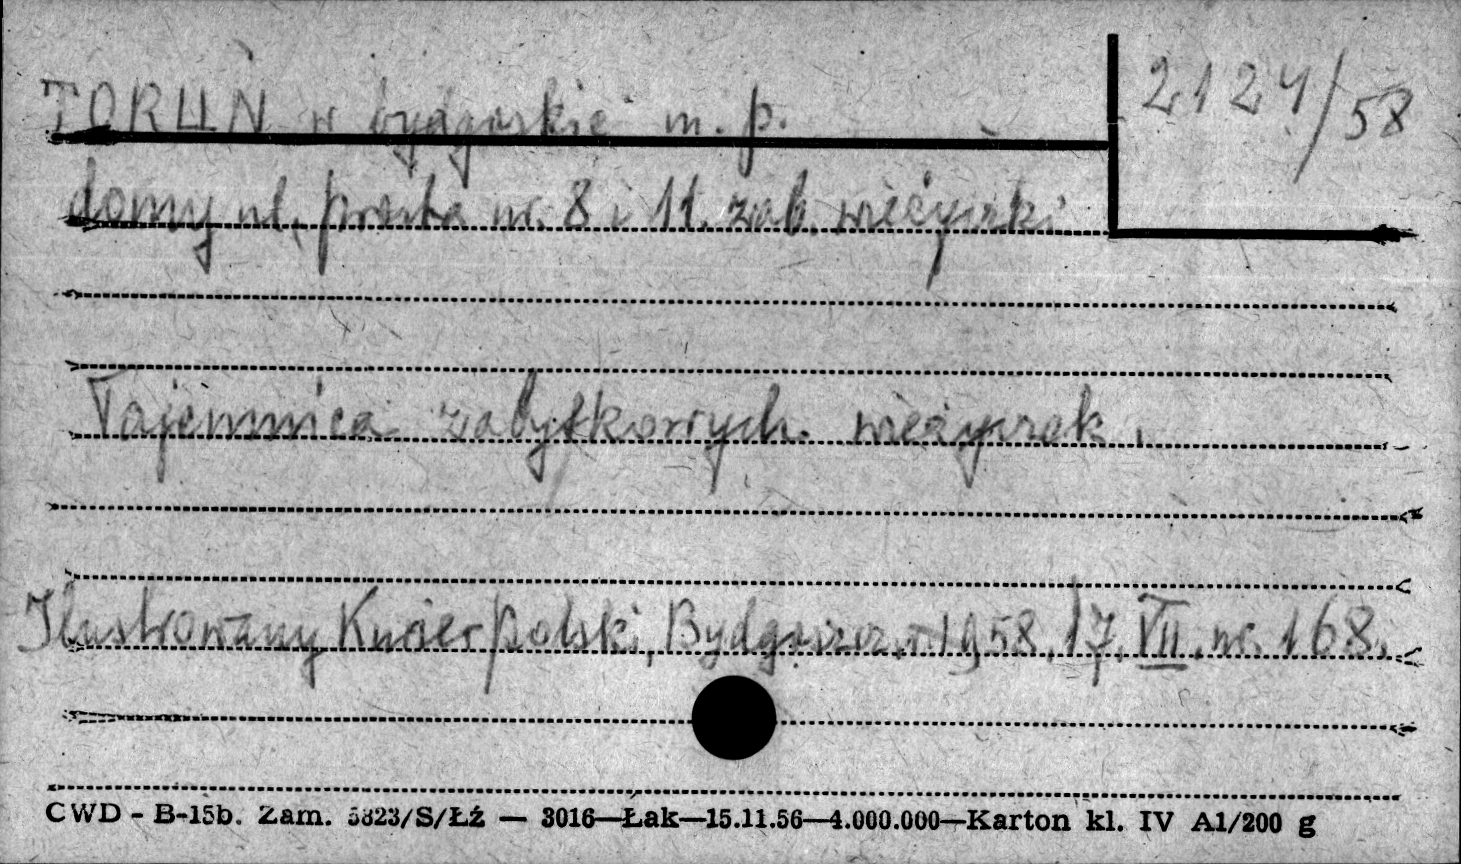 TORUŃ w bydgoskie m. p.
2124/58
domy ul. prosta nr. 8 i 11. zab. wieżyczki
Tajemnica zabytkowych wieżyczek.
Ilustrowany Kurier Polski, Bydgoszcz, r 1958. 17. VII. nr. 168.
CWD - B-15b. Zam. 5823/S/Łź — 3016—Łak—15.11.56—4.000.000—Karton kl. IV A1/200 g